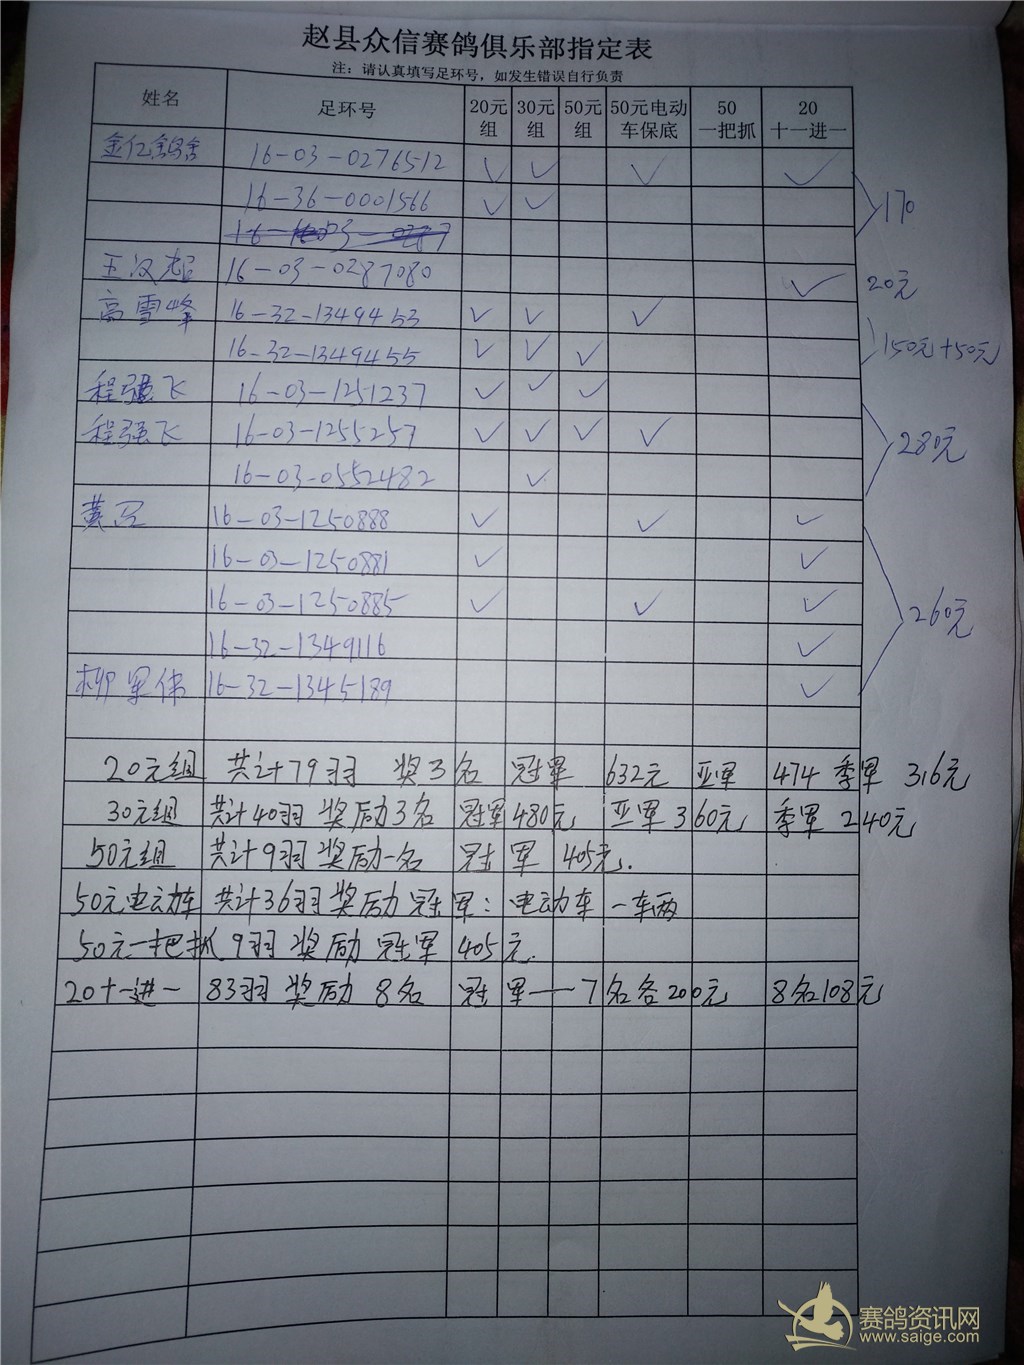 赵县众信赛鸽俱乐部指定表
注：请认真填写足环号，如发生错误自行负责
姓名 足环号 20元组 30元组 50元组 50元电动车保底 50一把抓 20十一进一
金亿鸽舍 16-03-0276512 ✓ ✓ ✓ ✓
16-36-0001566 ✓ ✓ 170
王汉超 16-03-0287080 ✓ 20元
高雪峰 16-32-1349453 ✓ ✓ ✓
16-32-1349455 ✓ ✓ ✓ 150元+50元
程强飞 16-03-1251237 ✓ ✓ ✓
程强飞 16-03-1255257 ✓ ✓ ✓ ✓ 280元
16-03-0552482 ✓
黄 16-03-1250888 ✓ ✓ ✓
16-03-1250881 ✓ ✓
16-03-1250885 ✓ ✓ ✓ 260元
16-32-1349116 ✓
柳军伟 16-32-1345189 ✓
20元组 共计79羽 奖3名 冠军 632元 亚军 474 季军 316元
30元组 共计40羽 奖励3名 冠军480元 亚军360元 季军240元
50元组 共计9羽 奖励一名 冠军 405元.
50元电动车 共计36羽 奖励冠军：电动车一车两
50元一把抓 9羽 奖励 冠军 405元.
20十一进一 83羽 奖励 8名 冠军——7名各200元 8名108元
赛鸽资讯网
www.saige.com